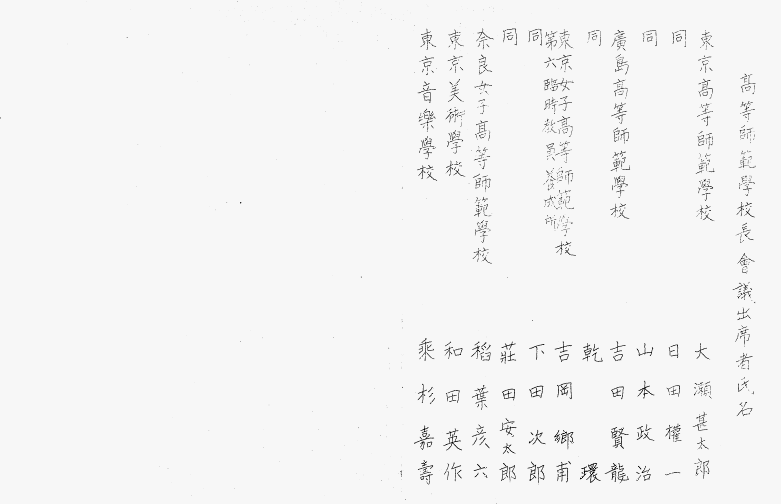 高等師範學校長會議出席者氏名
東京高等師範學校 大瀬甚太郎
同 日田權一
同 山本政治
廣島高等師範學校 吉田賢龍
同 乾環
東京女子高等師範學校 吉岡鄉甫
第六臨時教員養成所
同 下田次郎
同 莊田安太郎
奈良女子高等師範學校 稻葉彦六
東京美術學校 和田英作
東京音樂學校 乘杉嘉壽